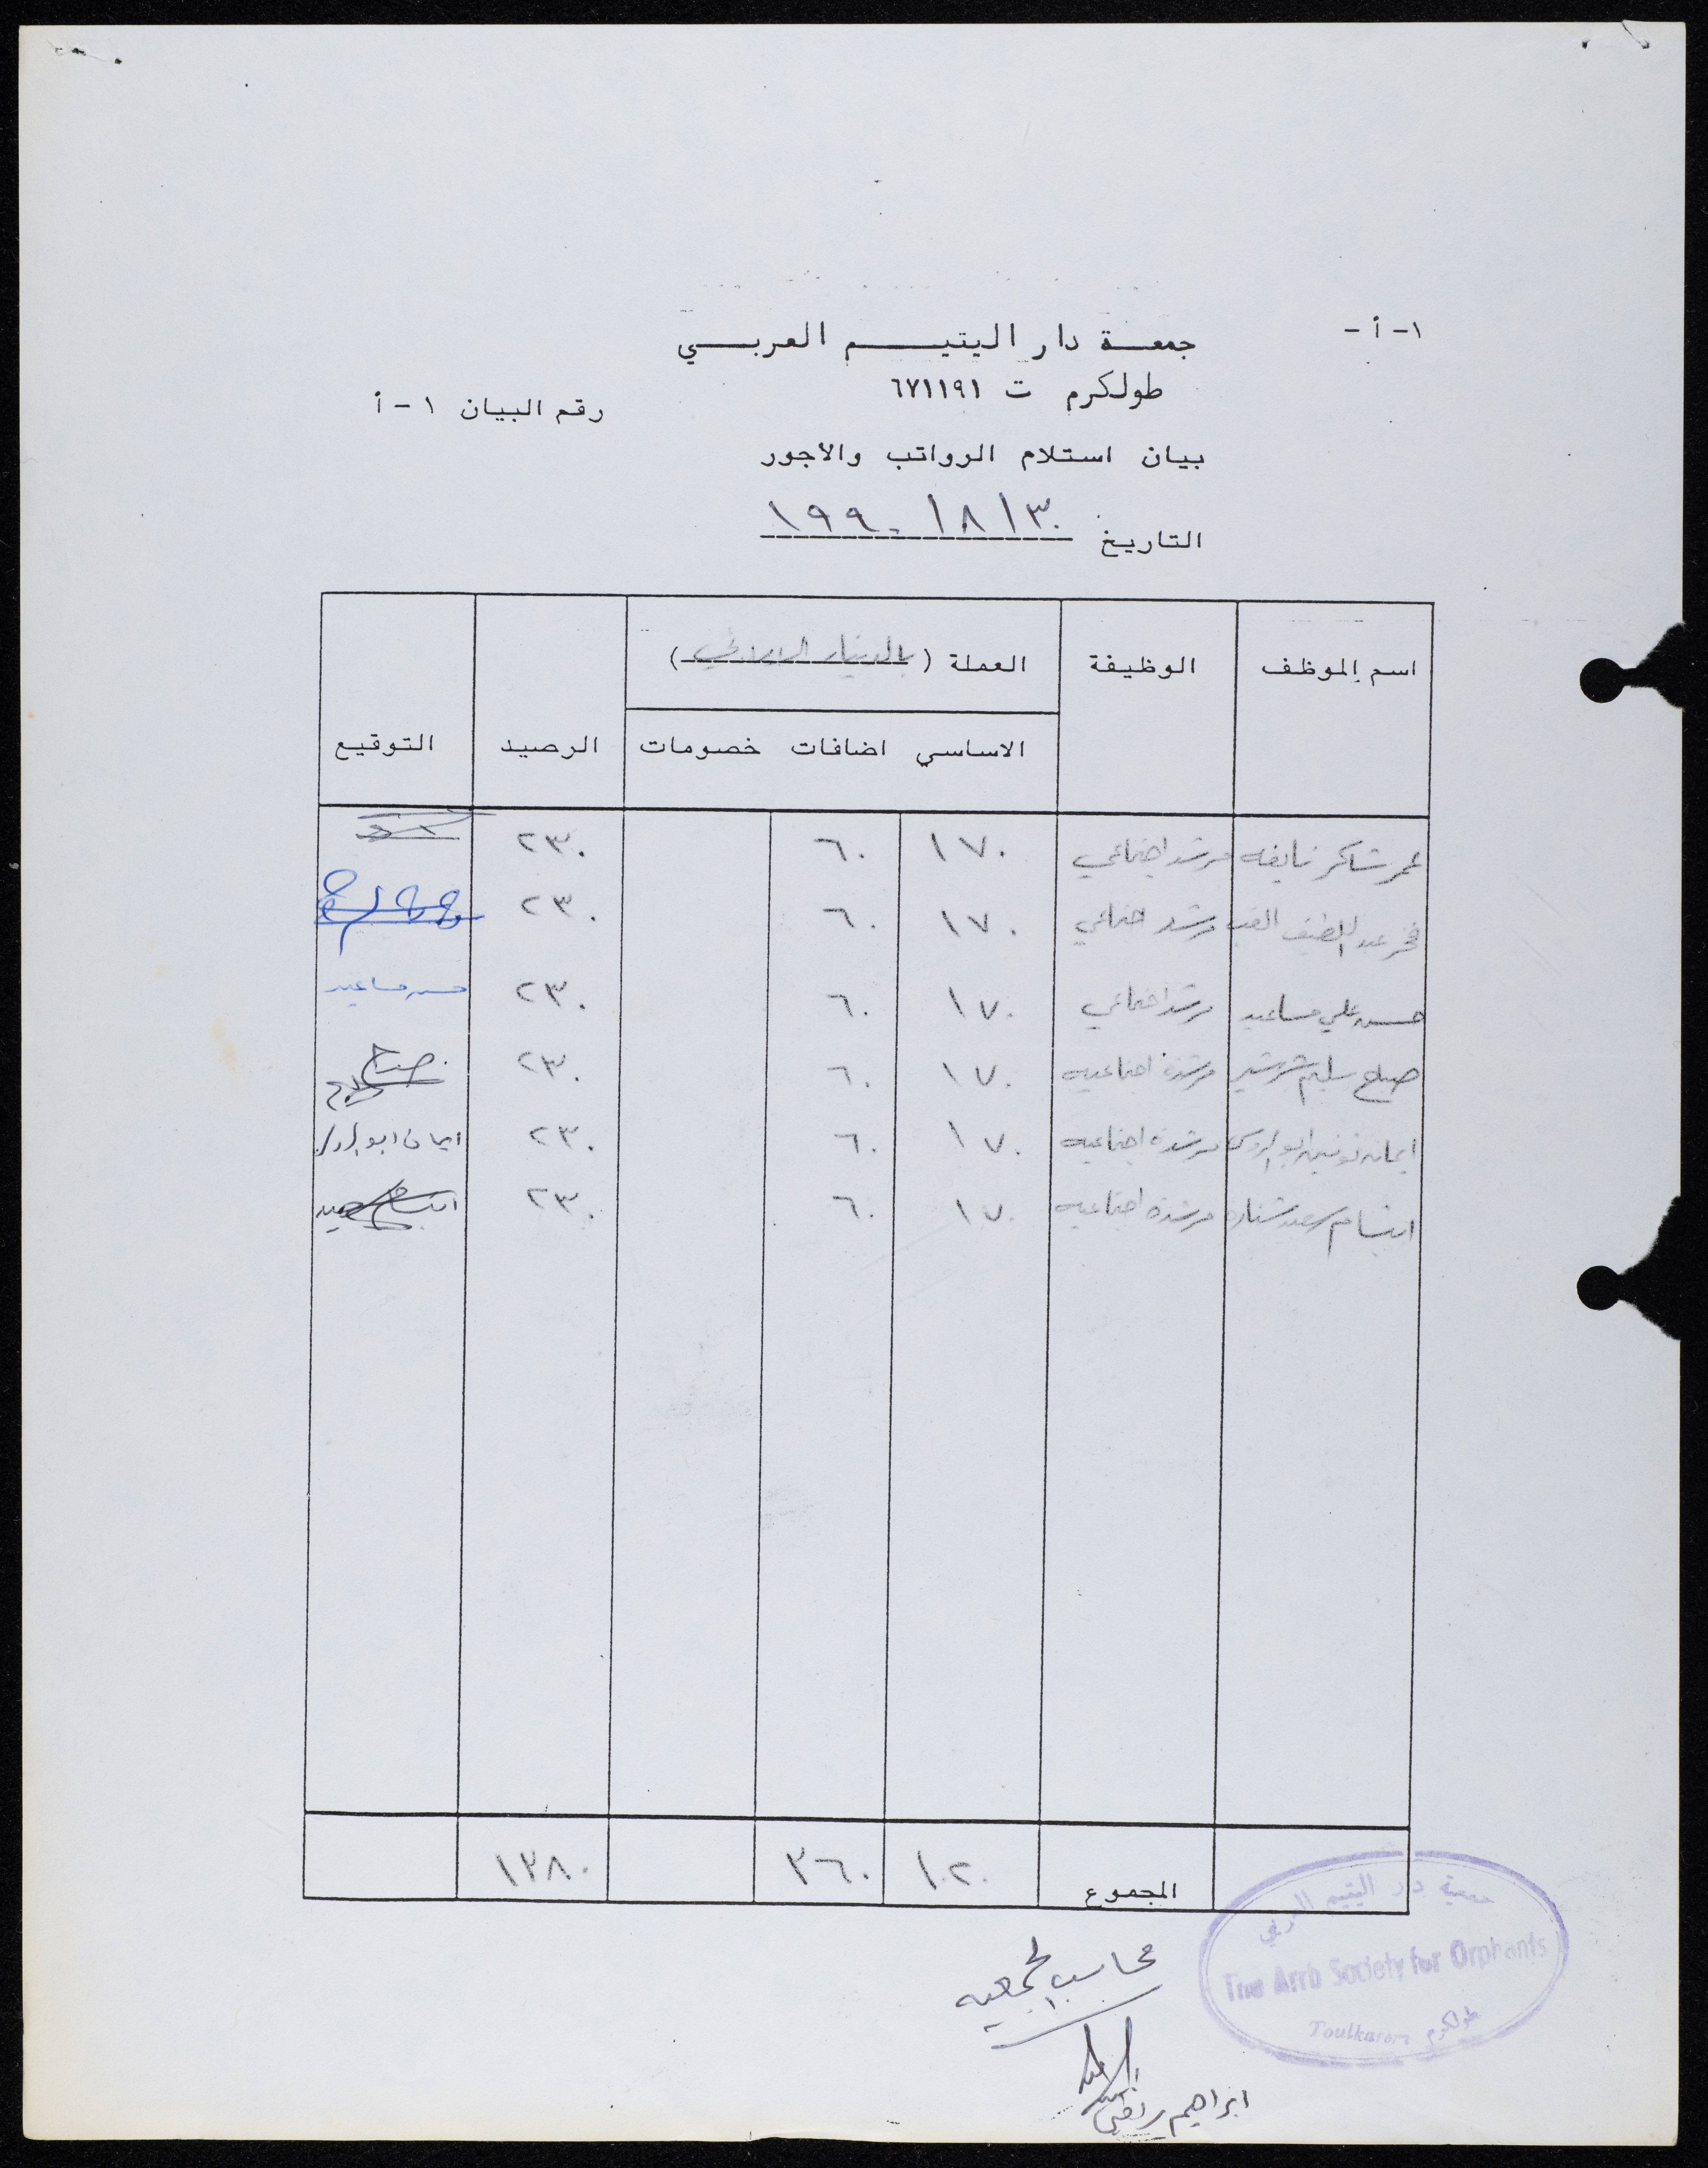 ١-أ-
جمعـة دار اليتيـــم العربـــي
طولكرم ت ٦٧١١٩١
رقم البيان ١-أ
بيان استلام الرواتب والاجور
التاريخ ٣٠/٨/١٩٩٠
اسم الموظف الوظيفة العملة (بالدينار الاردني) الرصيد التوقيع
الاساسي اضافات خصومات
عمر شاكر نايفه مرشد اجتماعي ١٧٠ ٦٠ ٢٣٠
عبد اللطيف مرشد اجتماعي ١٧٠ ٦٠ ٢٣٠
حسن علي مساعيد مرشد اجتماعي ١٧٠ ٦٠ ٢٣٠ حسن مساعيد
صباح سليم مرشدة اجتماعيه ١٧٠ ٦٠ ٢٣٠ صباح
ايمان ابو مرشدة اجتماعيه ١٧٠ ٦٠ ٢٣٠ ايمان ابو
ابتسام سعيد مرشدة اجتماعيه ١٧٠ ٦٠ ٢٣٠ ابتسام سعيد
المجموع ١٠٢٠ ٣٦٠ ١٣٨٠
محاسب الجمعيه
ابراهيم
جمعية دار اليتيم العربي
The Arrb Society for Orphants
Toulkarem طولكرم